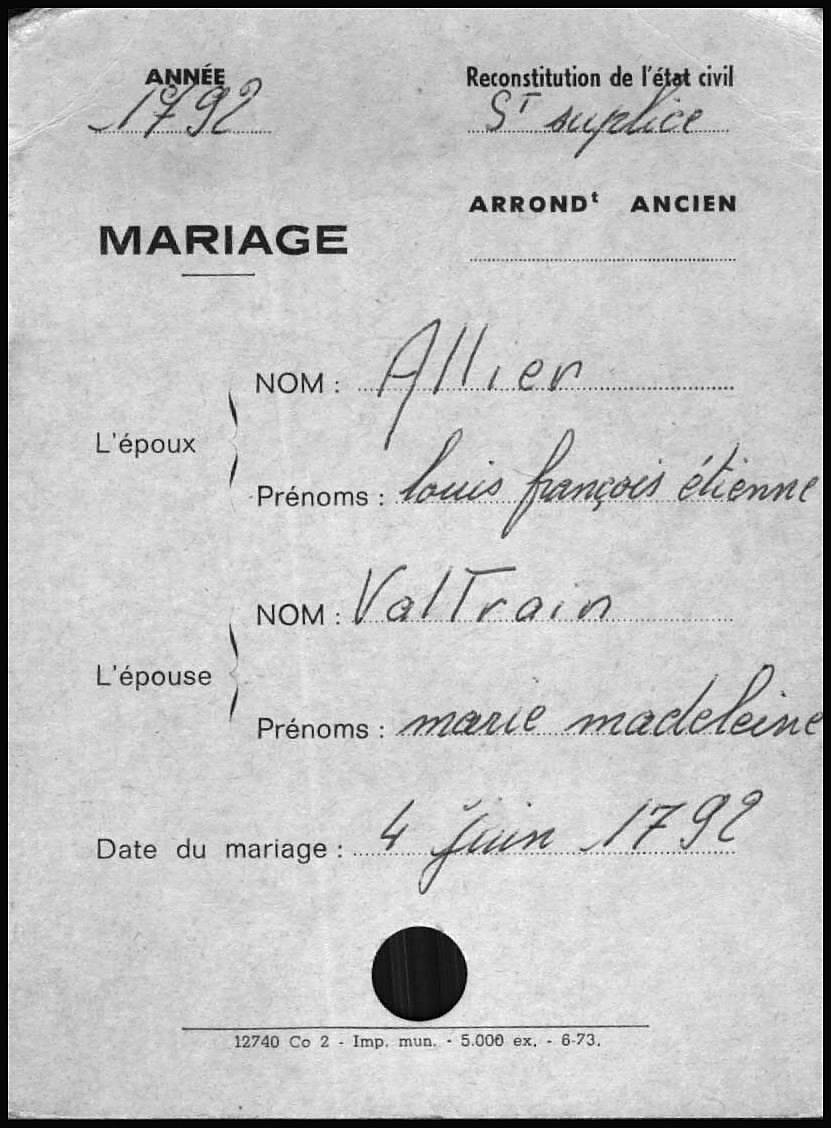 ANNÉE
1792
Reconstitution de l'état civil
St suplice
ARRONDt ANCIEN
MARIAGE
L'époux
NOM : Allier
Prénoms : louis françois étienne
L'épouse
NOM : ValTrain
Prénoms : marie madeleine
Date du mariage : 4 juin 1792
12740 Co 2 - Imp. mun. - 5.000 ex. - 6-73.